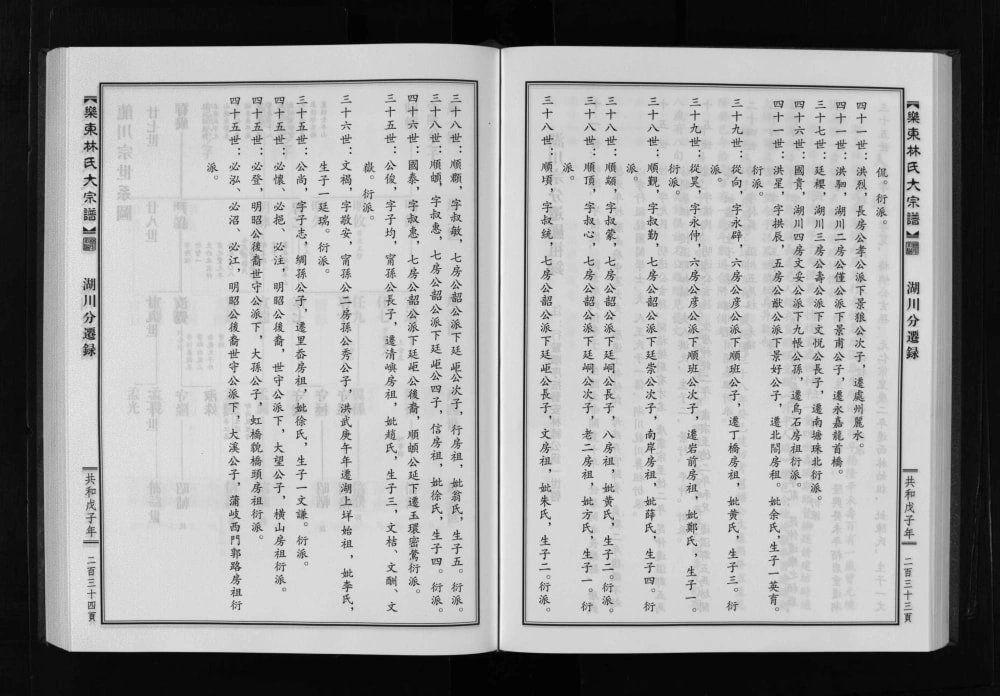 【樂東林氏大宗譜】
湖川分遷録
共和戊子年
二百三十三頁
侃。衍派。
四十一世：洪烈，長房公孝公派下景狼公次子，遷處州麗水。
四十一世：洪馴，湖川二房公僅公派下景甫公子，遷永嘉龍首橋。
三十七世：廷櫻，湖川三房公壽公派下文悦公長子，遷南塘珠北衍派。
四十六世：國貴，湖川四房文妥公派下九悵公孫，遷烏石房祖衍派。
四十一世：洪星，字拱辰，五房公猷公派下景好公子，遷北閤房祖。妣余氏，生子一英育。
衍派。
三十九世：從向，字永辟，六房公彦公派下順班公子，遷丁橋房祖，妣黄氏，生子三。衍
派。
三十九世：從昊，字永仲，六房公彦公派下順班公次子，遷岩前房祖，妣鄭氏，生子一。
衍派。
三十八世：順覲，字叔勤，七房公韶公派下廷崇公次子，南岸房祖，妣薛氏，生子四。衍
派。
三十八世：順顓，字叔蒙，七房公韶公派下廷峒公長子，八房祖，妣黄氏，生子二。衍派。
三十八世：順頂，字叔心，七房公韶公派下廷峒公次子，老二房祖，妣方氏，生子一。衍
派。
三十八世：順頊，字叔統，七房公韶公派下廷岠公長子，文房祖，妣朱氏，生子二。衍派。
三十八世：順顆，字叔敏，七房公韶公派下廷岠公次子，行房祖，妣翁氏，生子五。衍派。
三十八世：順頔，字叔惠，七房公韶公派下廷岠公四子，信房祖，妣徐氏，生子四。衍派。
四十六世：國泰，字叔惠，七房公韶公派下廷岠公後裔，順頔公廷下遷玉環密鶯衍派。
三十五世：公俊，字子均，甯孫公長子，遷清嶼房祖，妣趙氏，生子三，文桔、文酬、文
嶽。衍派。
三十六世：文禍，字敬安，甯孫公二房孫公秀公子，洪武庚午年遷湖上垟始祖，妣李氏，
生子一廷瑞。衍派。
三十五世：公尚，字子志，綢孫公子，遷里岙房祖，妣徐氏，生子一文謙。衍派。
四十五世：必懷、必挹、必注，明昭公後裔，世守公派下，大望公子，横山房祖衍派。
四十五世：必登，明昭公後裔世守公派下，大孫公子，虹橋貌橋頭房祖衍派。
四十五世：必泓、必沼、必江，明昭公後裔世守公派下，大溪公子，蒲岐西門郭路房祖衍
派。
【樂東林氏大宗譜】
湖川分遷録
共和戊子年
二百三十四頁